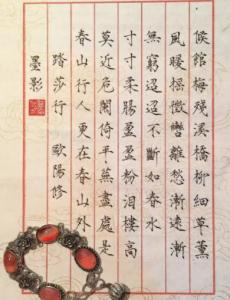 候館梅殘溪橋柳細草薰
風暖搖徵轡離愁漸遠漸
無窮迢迢不斷如春水
寸寸柔腸盈盈粉泪樓高
莫近危闌倚平蕪盡處是
春山行人更在春山外
踏莎行 歐陽修
墨影